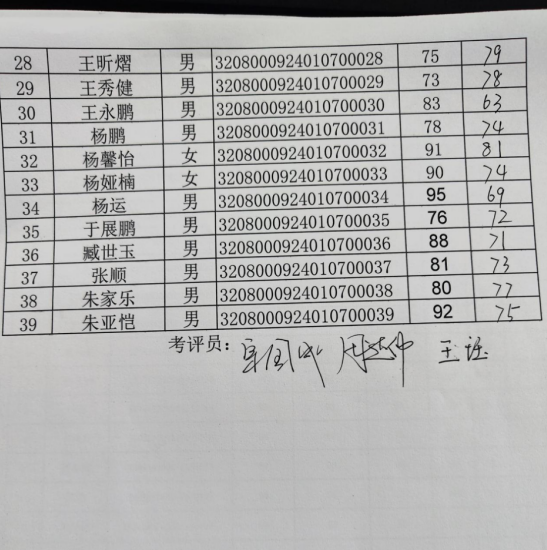 28 王昕熠 男 3208000924010700028 75 79
29 王秀健 男 3208000924010700029 73 78
30 王永鹏 男 3208000924010700030 83 63
31 杨鹏 男 3208000924010700031 78 74
32 杨馨怡 女 3208000924010700032 91 81
33 杨娅楠 女 3208000924010700033 90 74
34 杨运 男 3208000924010700034 95 69
35 于展鹏 男 3208000924010700035 76 72
36 臧世玉 男 3208000924010700036 88 71
37 张顺 男 3208000924010700037 81 73
38 朱家乐 男 3208000924010700038 80 77
39 朱亚恺 男 3208000924010700039 92 75
考评员：